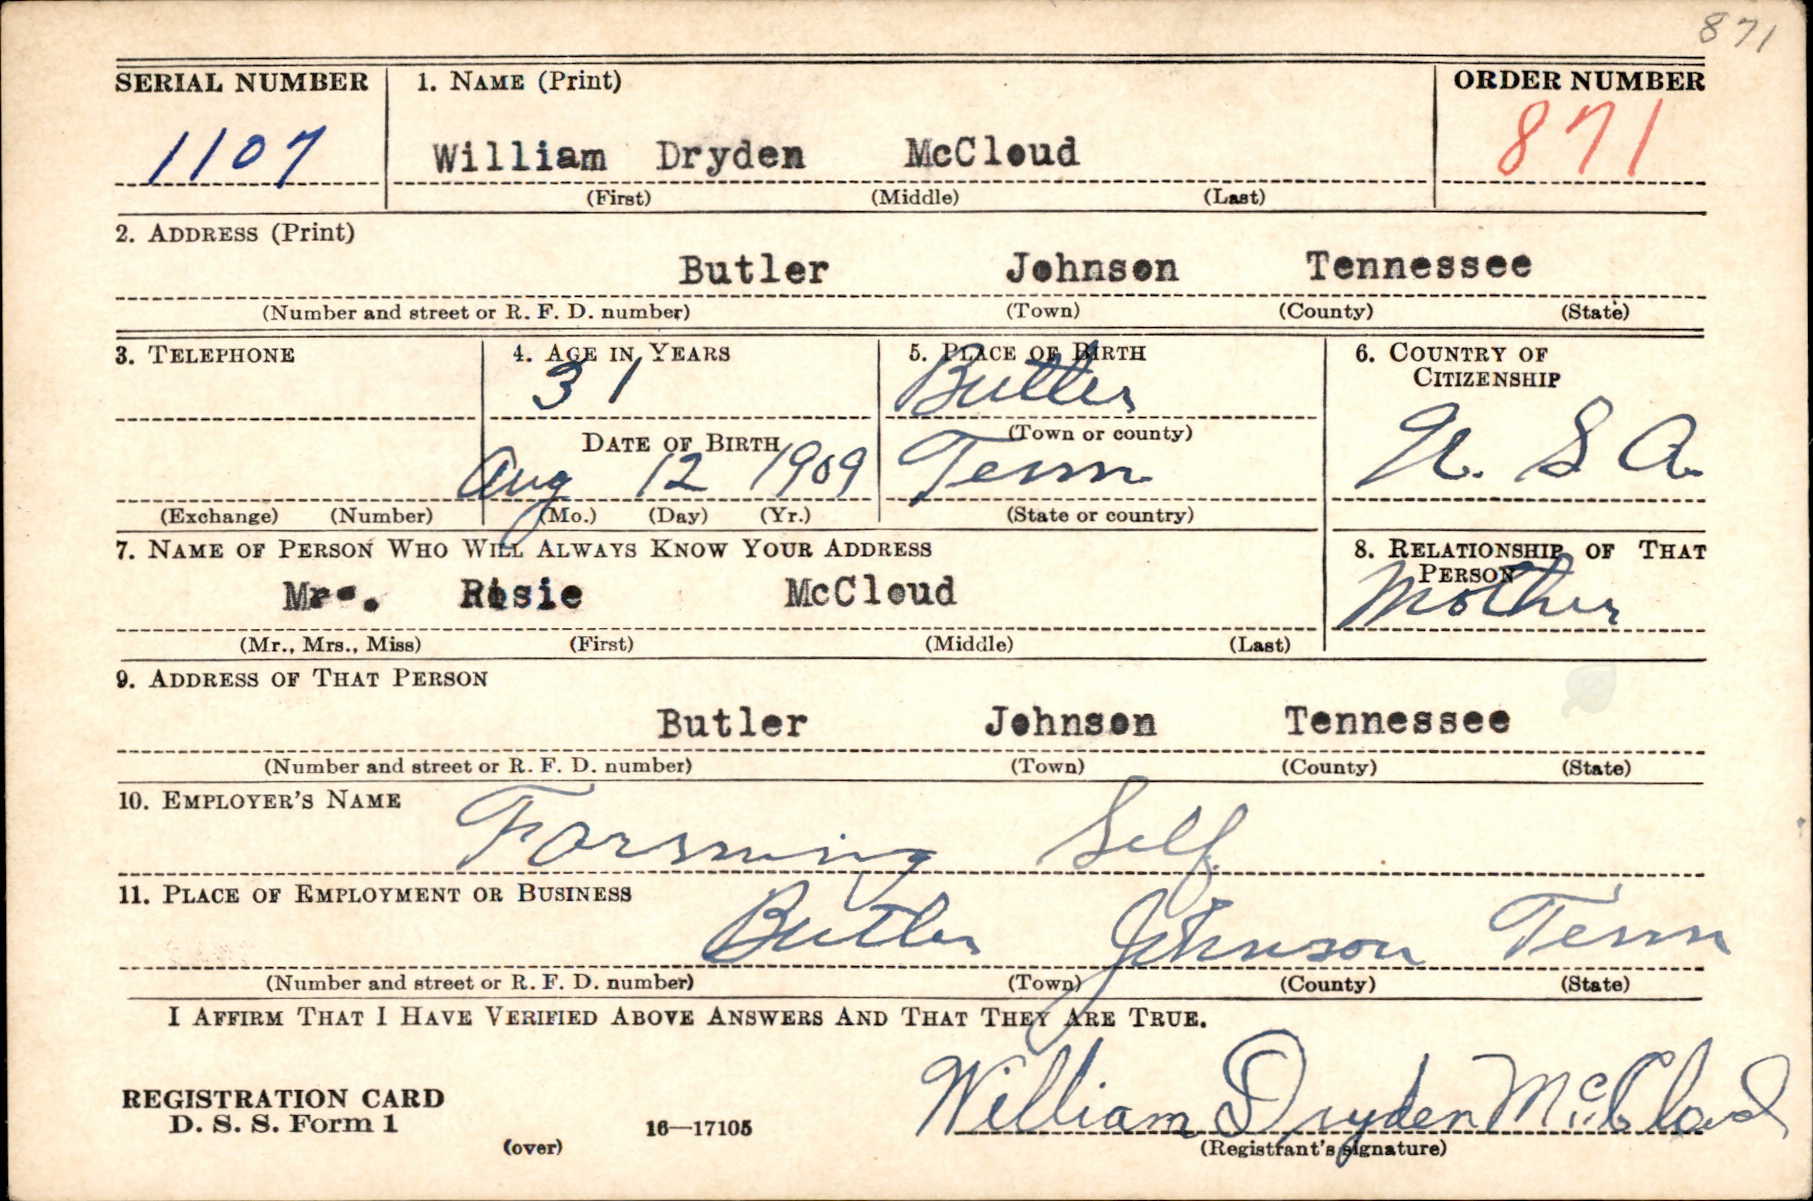 871
SERIAL NUMBER 1. NAME (Print) ORDER NUMBER
1107 William Dryden McCloud 871
(First) (Middle) (Last)
2. ADDRESS (Print)
Butler Johnson Tennessee
(Number and street or R. F. D. number) (Town) (County) (State)
3. TELEPHONE 4. AGE IN YEARS 5. PLACE OF BIRTH 6. COUNTRY OF
CITIZENSHIP
31 Butler
(Town or county)
DATE OF BIRTH
Aug 12 1909 Tenn U. S A.
(Exchange) (Number) (Mo.) (Day) (Yr.) (State or country)
7. NAME OF PERSON WHO WILL ALWAYS KNOW YOUR ADDRESS 8. RELATIONSHIP OF THAT
PERSON
Mrs. Rosie McCloud Mother
(Mr., Mrs., Miss) (First) (Middle) (Last)
9. ADDRESS OF THAT PERSON
Butler Johnson Tennessee
(Number and street or R. F. D. number) (Town) (County) (State)
10. EMPLOYER'S NAME
Farming Self
11. PLACE OF EMPLOYMENT OR BUSINESS
Butler Johnson Tenn
(Number and street or R. F. D. number) (Town) (County) (State)
I AFFIRM THAT I HAVE VERIFIED ABOVE ANSWERS AND THAT THEY ARE TRUE.
William Dryden McCloud
REGISTRATION CARD
D. S. S. Form 1 16—17105
(over) (Registrant's signature)